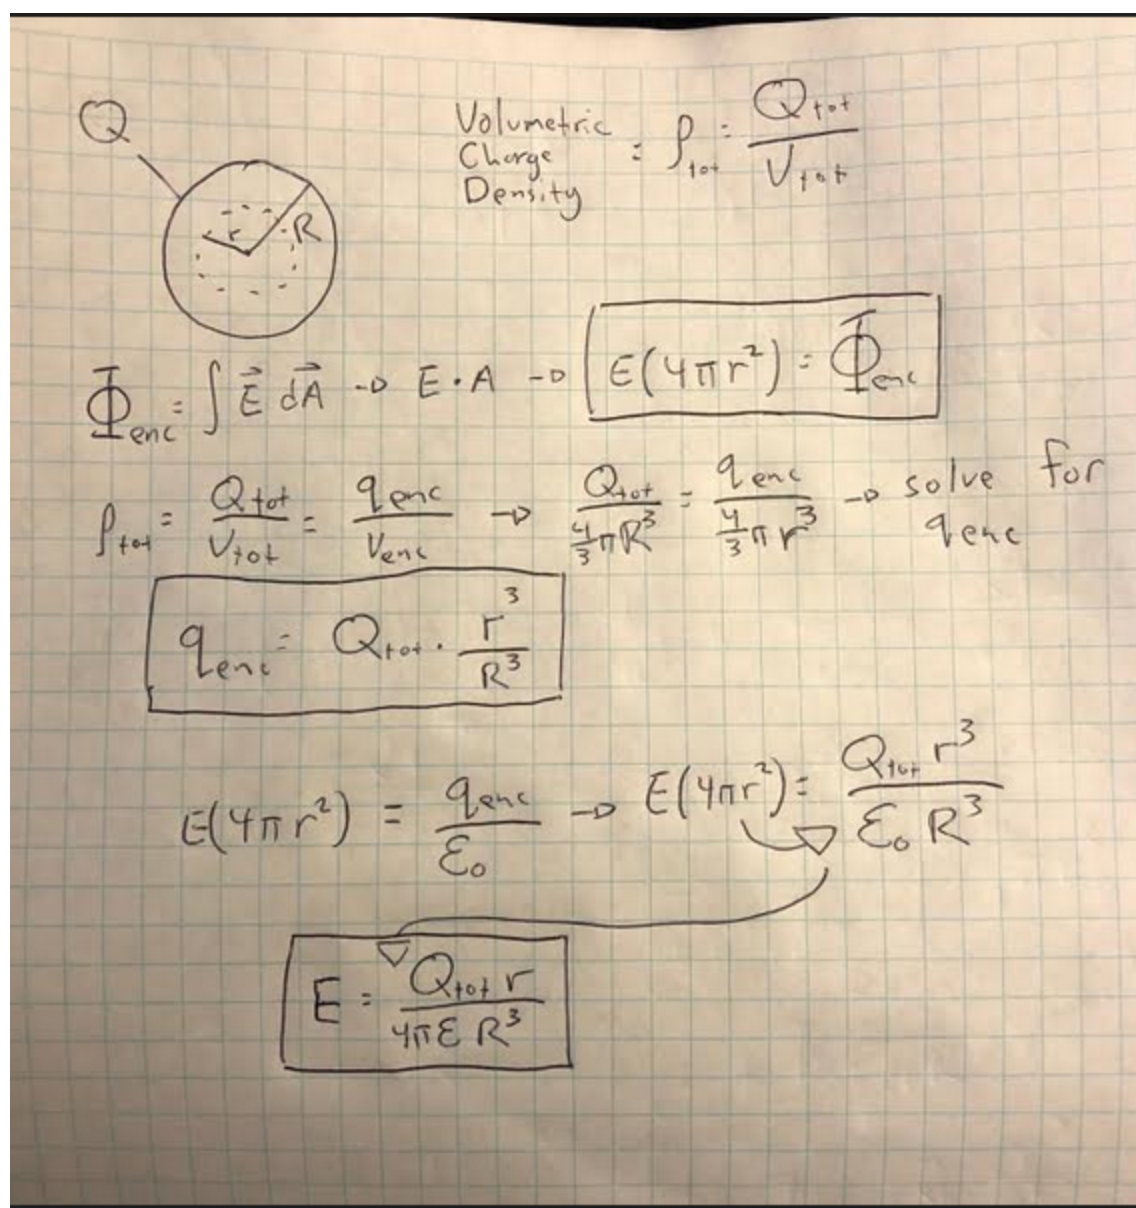 Q
r
R
Volumetric
Charge
Density
= ρ_tot = Q_tot / V_tot
Φ_enc = ∫ E⃗ dA⃗ → E · A → E(4πr²) = Φ_enc
ρ_tot = Q_tot / V_tot = q_enc / V_enc → Q_tot / (4/3 πR³) = q_enc / (4/3 πr³) → solve for
q_enc
q_enc = Q_tot · r³ / R³
E(4πr²) = q_enc / ε₀ → E(4πr²) = Q_tot r³ / (ε₀ R³)
E = Q_tot r / (4πε R³)